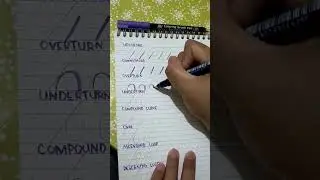 OVERTURN
UNDERTURN
COMPOUND
OVERTURN
UNDERTURN
COMPOUND CURVE
OVAL
ASCENDING LOOP
DESCENDING LOOP